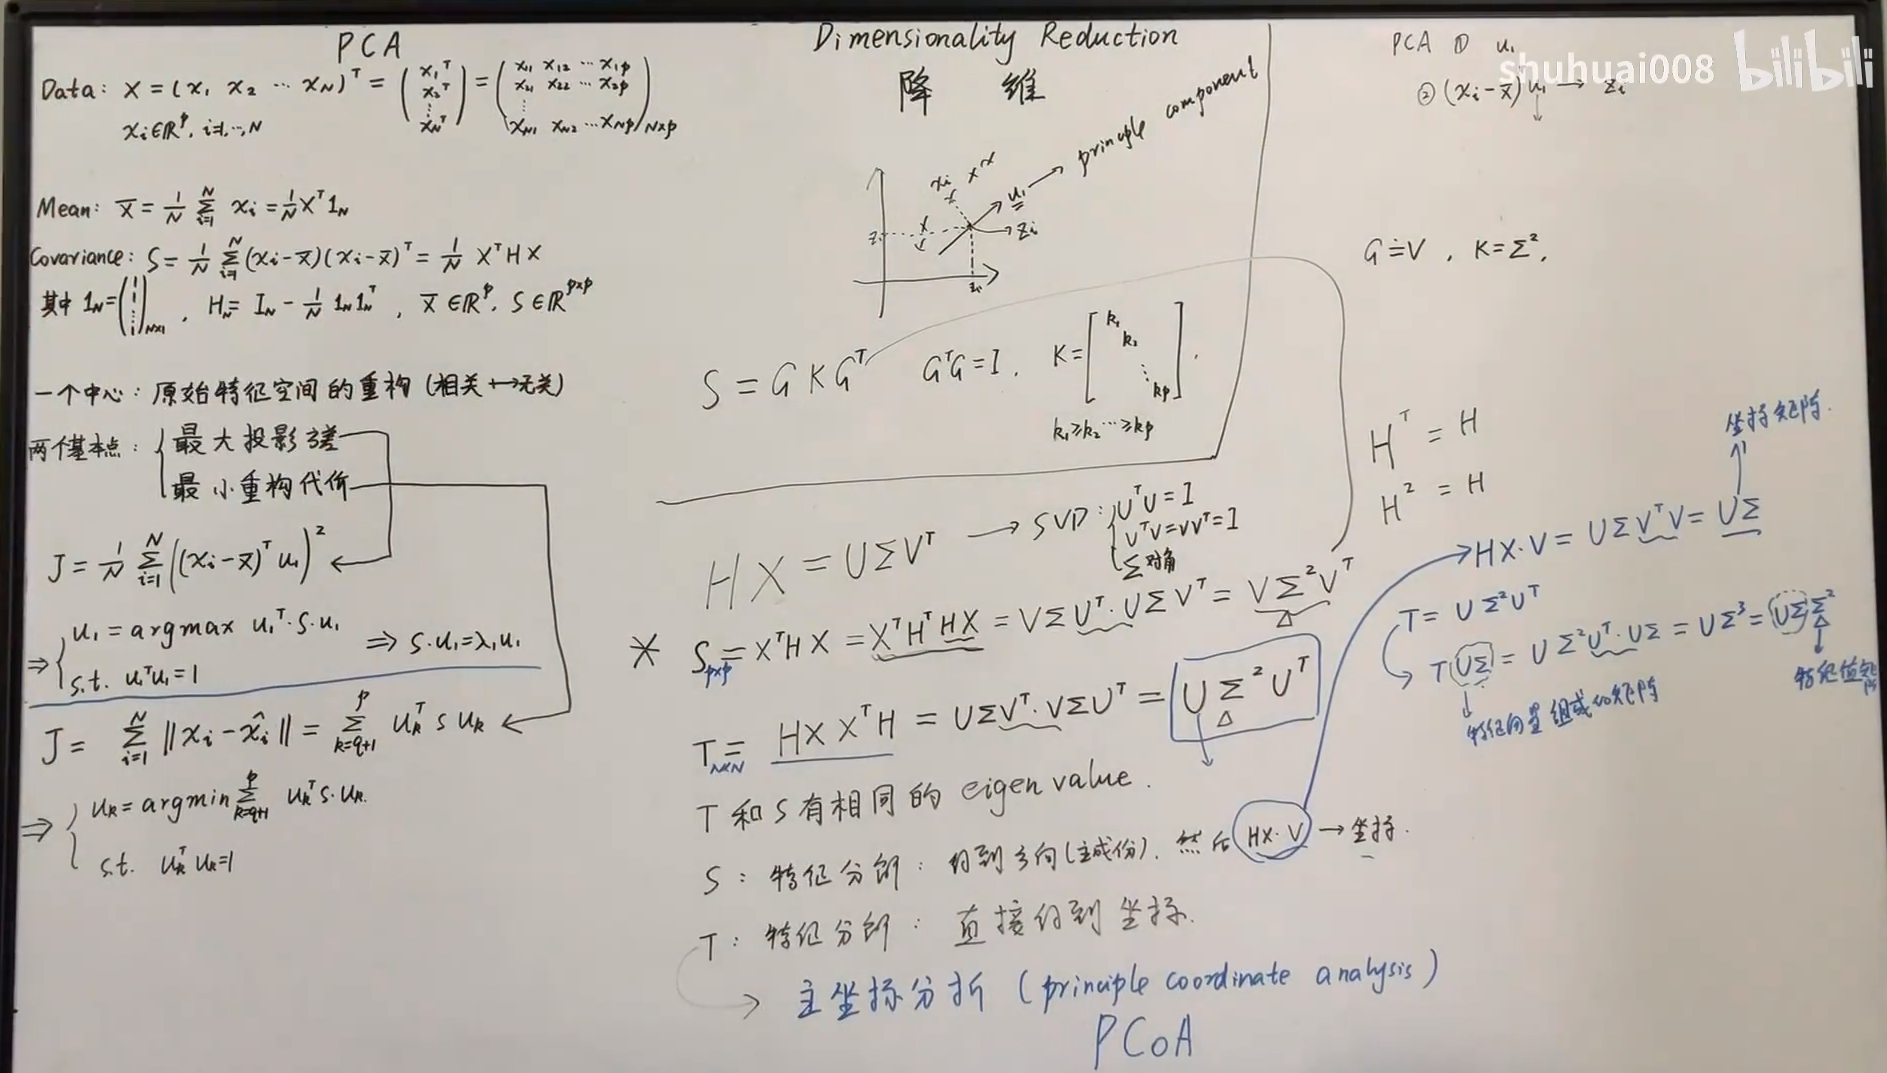 PCA
Data: X = (x₁ x₂ ⋯ x_N)^T = (x₁^T x₂^T ⋮ x_N^T) = (x₁₁ x₁₂ ⋯ x₁p x₂₁ x₂₂ ⋯ x₂p ⋮ x_N1 x_N2 ⋯ x_Np)_N×p
xᵢ∈ℝ^p, i=1,⋯,N
Mean: X̄ = 1/N Σ_{i=1}^N xᵢ = 1/N X^T 1_N
Covariance: S = 1/N Σ_{i=1}^N (xᵢ-x̄)(xᵢ-x̄)^T = 1/N X^T H X
其中 1_N = (1 1 ⋮ 1)_N×1 , H_N = I_N - 1/N 1_N 1_N^T , X̄ ∈ℝ^p, S∈ℝ^{p×p}
一个中心: 原始特征空间的重构 (相关↔无关)
两个基本点: { 最大投影方差
最小重构代价
J = 1/N Σ_{i=1}^N ((xᵢ-x̄)^T u₁)²
⇒ { u₁ = argmax u₁^T·S·u₁ ⇒ S·u₁=λ₁u₁
s.t. u₁^T u₁ = 1
J = Σ_{i=1}^N ‖xᵢ-x̂ᵢ‖ = Σ_{k=q+1}^p u_k^T S u_k
⇒ { u_k = argmin Σ_{k=q+1}^p u_k^T S·u_k.
s.t. u_k^T u_k=1
Dimensionality Reduction
降 维
principle component
xᵢ
u₁
zᵢ
S = G K G^T G^T G = I. K = [k₁ k₂ ⋱ k_p].
k₁≥k₂⋯≥k_p
HX = UΣV^T → SVD: { U^T U = I
V^T V = VV^T = I
Σ 对角
* S_p×p = X^T H X = X^T H^T H X = VΣU^T·UΣV^T = VΣ²V^T
T_N×N = HXX^T H = UΣV^T·VΣU^T = UΣ²U^T
T 和 S 有相同的 eigen value.
S: 特征分解: 得到方向(主成份). 然后 HX·V → 坐标.
T: 特征分解: 直接得到坐标.
→ 主坐标分析 (principle coordinate analysis)
PCoA
PCA ① u₁
② (xᵢ-x̄) u₁ → zᵢ
shuhuai008 bilibili
G≐V , K=Σ²,
H^T = H
H² = H
坐标矩阵.
HX·V = UΣV^T V = UΣ
T = UΣ²U^T
T UΣ = UΣ²U^T·UΣ = UΣ³ = UΣ Σ²
特征向量组成的矩阵
特征值矩阵